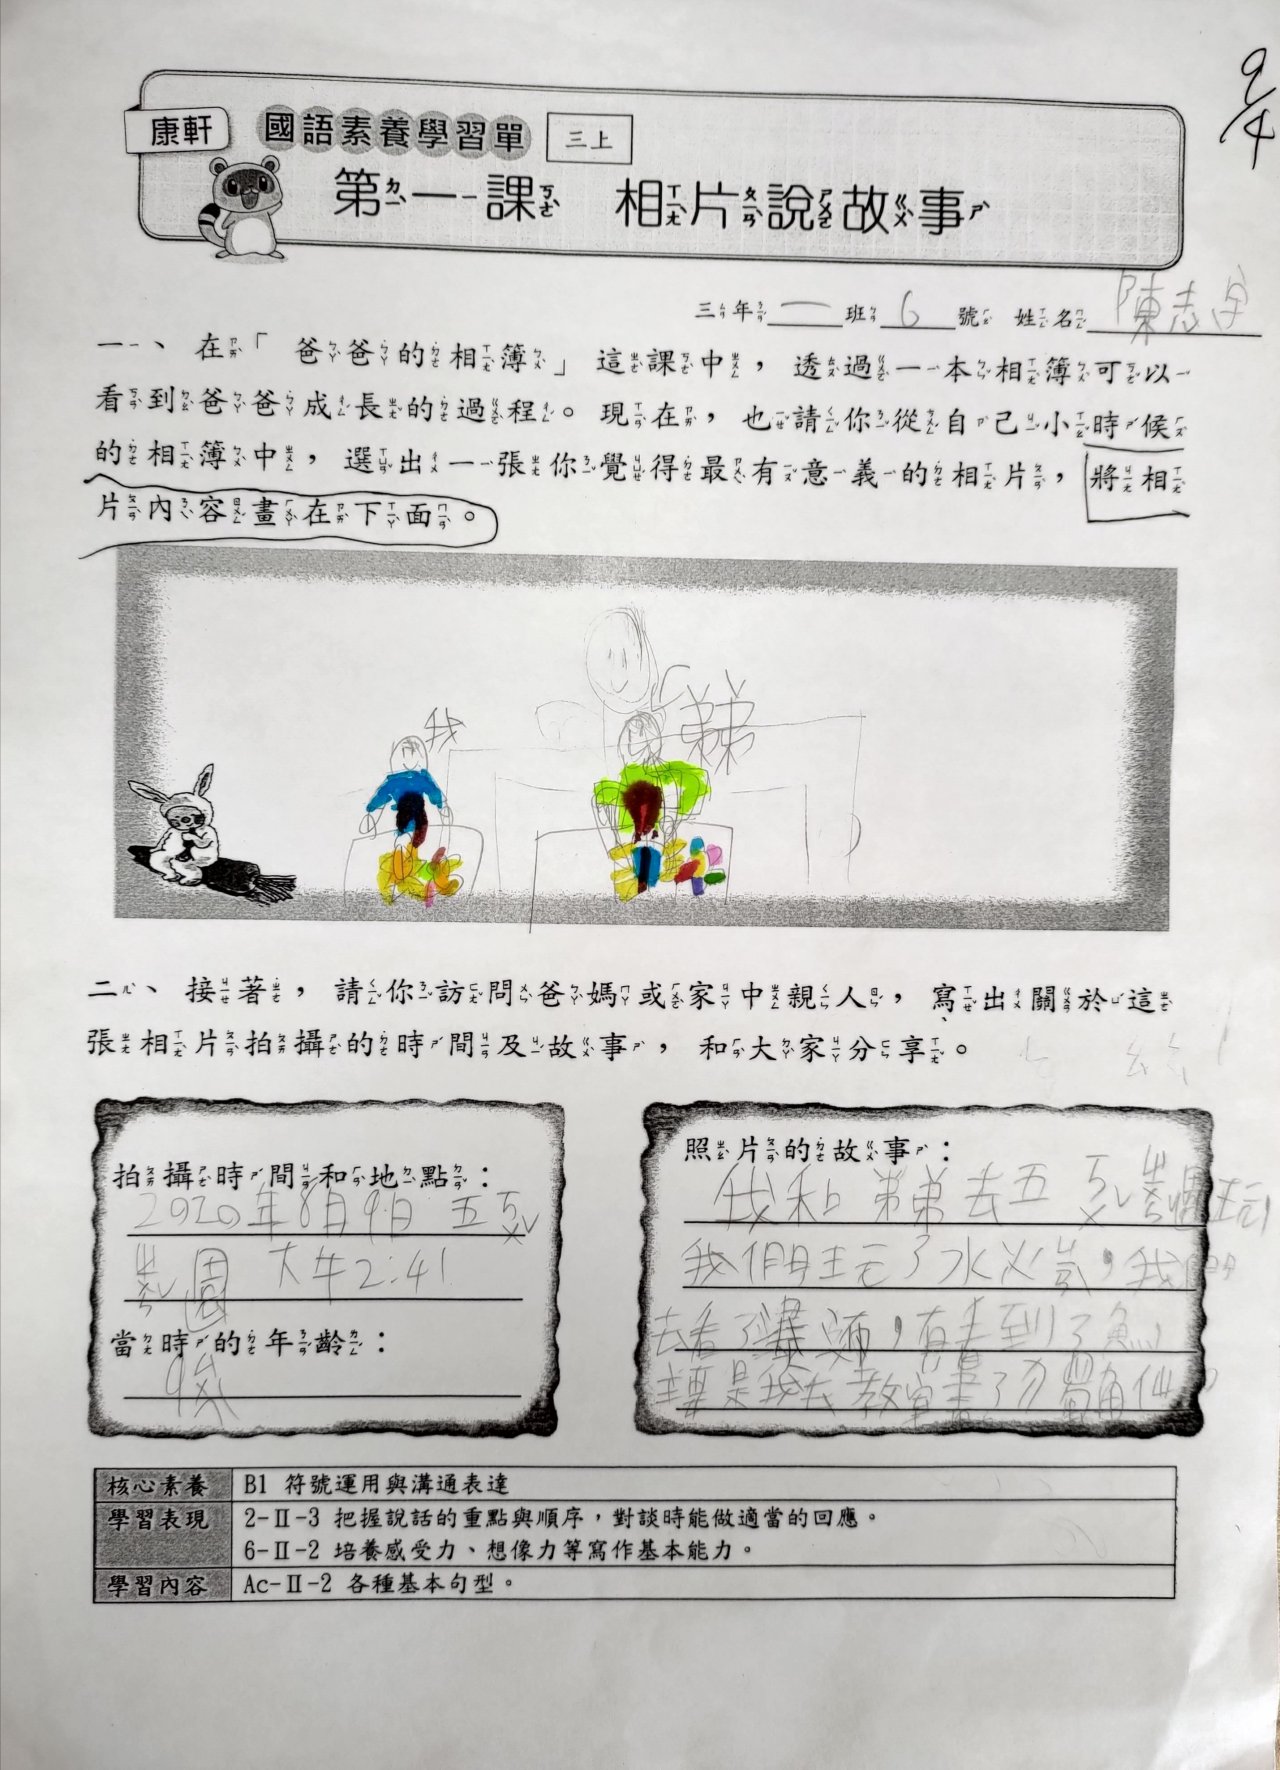 9/4
康軒 國語素養學習單 三上
第一課 相片說故事
三年一班6號 姓名陳志宇
一、在「爸爸的相簿」這課中，透過一本相簿可以
看到爸爸成長的過程。現在，也請你從自己小時候
的相簿中，選出一張你覺得最有意義的相片，將相
片內容畫在下面。
我
弟弟
二、接著，請你訪問爸媽或家中親人，寫出關於這
張相片拍攝的時間及故事，和大家分享。
拍攝時間和地點：
2020年8月9日 五ㄨˇ
ㄐㄧㄠˇ園 下午2:41
當時的年齡：
9歲
照片的故事：
我和弟弟去五ㄨˇ ㄐㄧㄠˇ園玩
我們玩了水火箭，我們
去看了 ，有看到了魚
主要是我去教室畫了 獨角仙
核心素養 B1 符號運用與溝通表達
學習表現 2-Ⅱ-3 把握說話的重點與順序，對談時能做適當的回應。
6-Ⅱ-2 培養感受力、想像力等寫作基本能力。
學習內容 Ac-Ⅱ-2 各種基本句型。